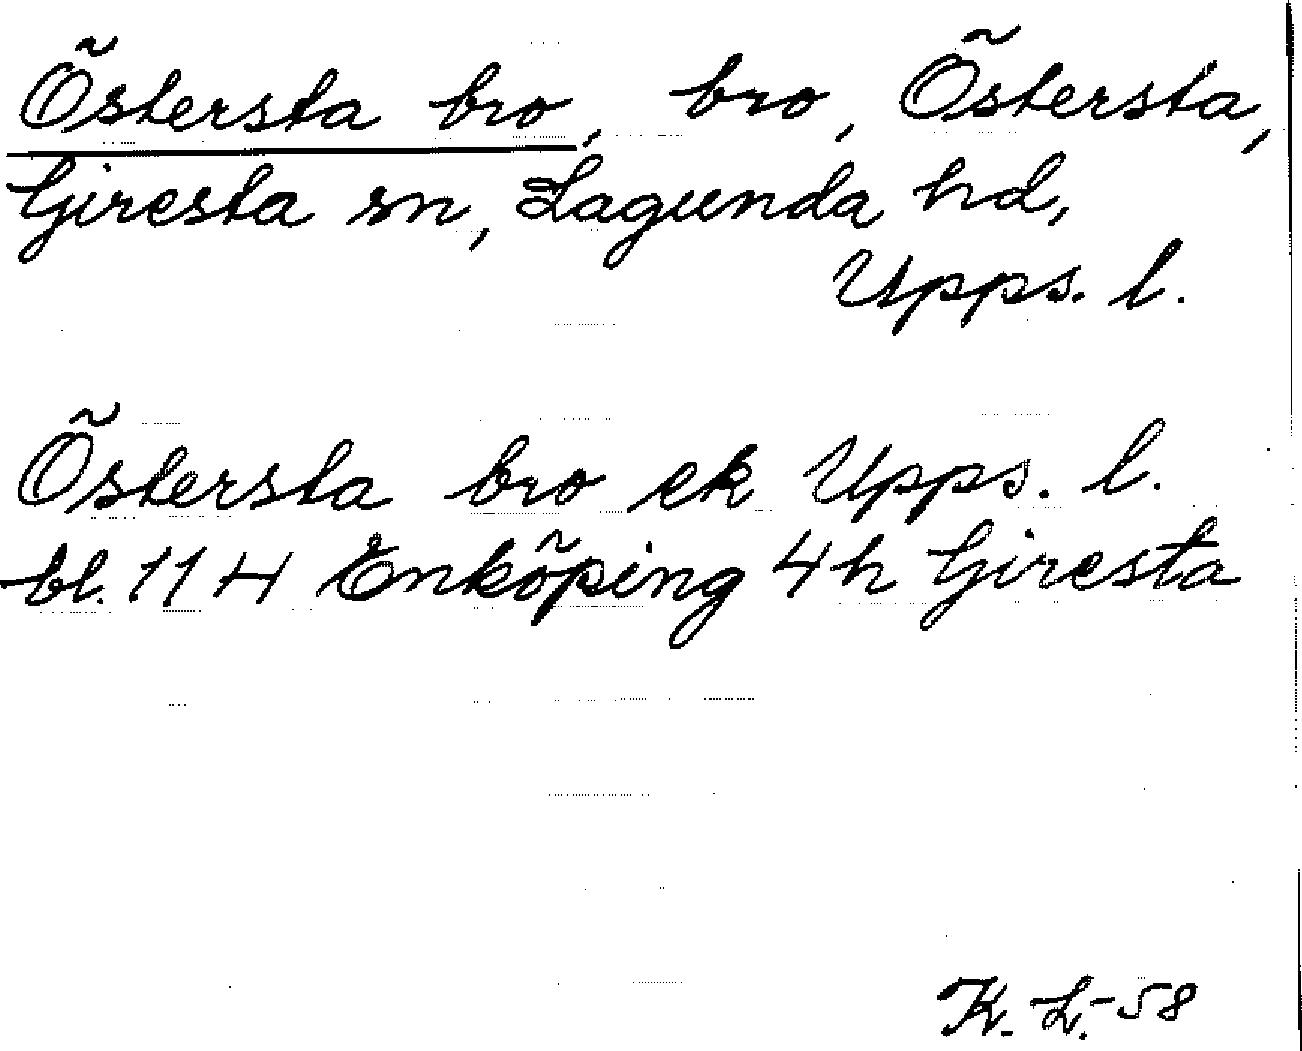 Östersta bro, bro, Östersta,
Giresta sn, Lagunda hd,
Upps. l.
Östersta bro ek Upps. l.
bl. 11 H Enköping 4 h Giresta
K. L. -58